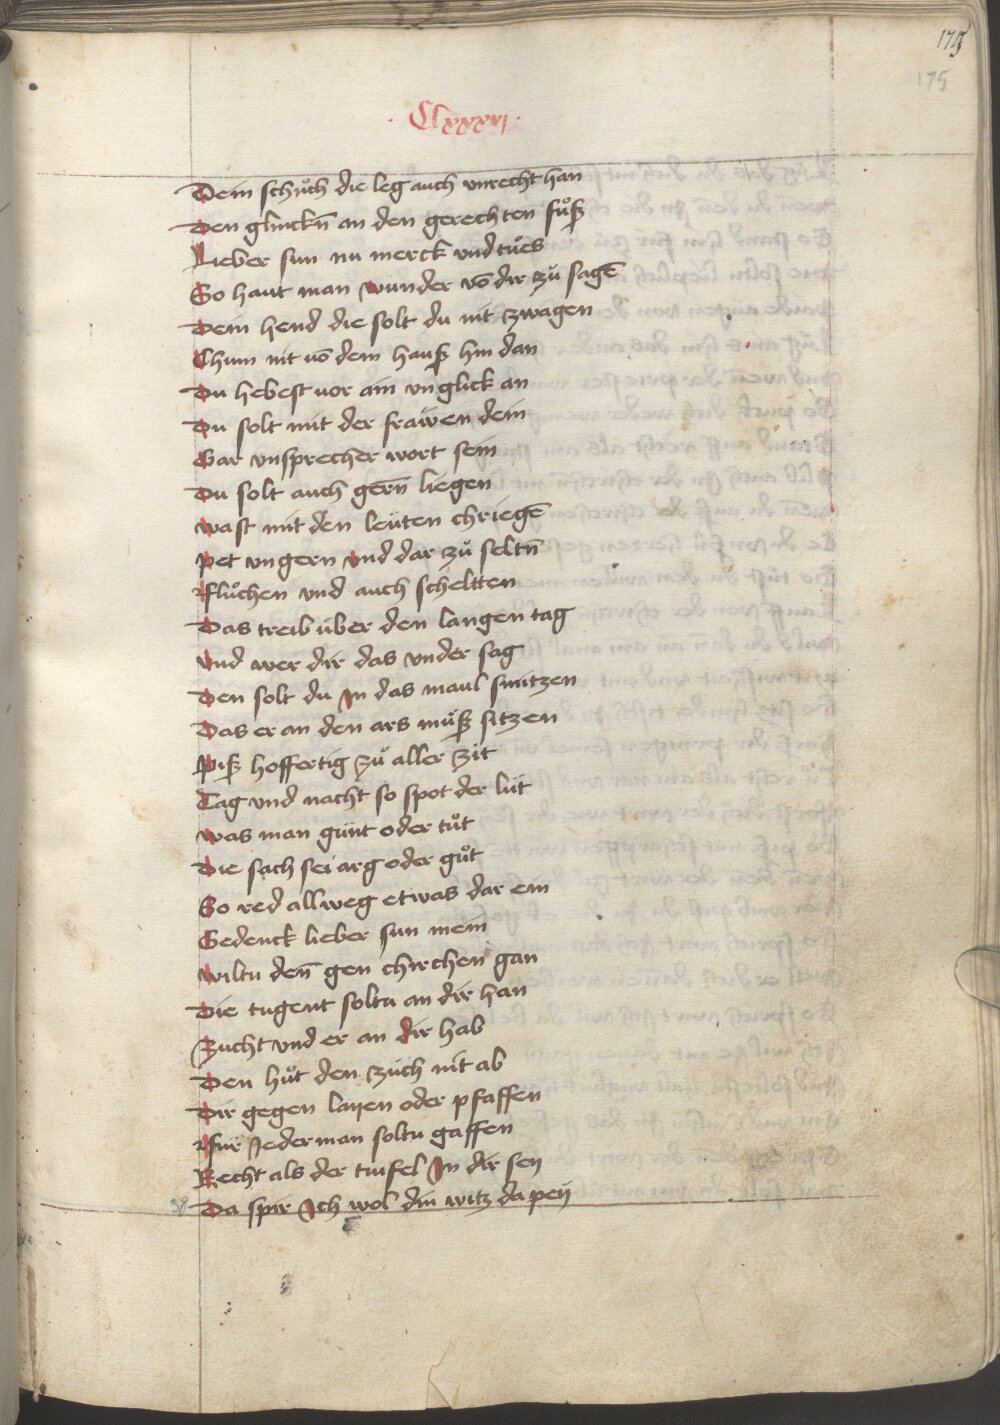 175
175
· Clxxxxvj ·
Dein schuͦch die leg auch vnrecht han
Den glinckn̄ an den gerechten fuͦß
Lieber sun nu merck vnd tuͦes
So haut man wunder vō dir zuͦ sagē
Dein hend die solt du nit zwagen
Chum nit uō dem hauß hin dan
Du hebest uor ain vnglick an
Du solt mit der frawen dein
Gar vnsprecher wort sein
Du solt auch gern̄ liegen
Vast mit den leuten chriegē
Pet vngern vnd dar zuͦ seltn̄
Fluͦchen vnd auch scheltten
Das treib über den langen tag
Vnd wer dir das vnder sag
Den solt du Jn das maul smitzen
Das er an den ars muͦß sitzen
Piß hoffertig zuͦ aller zit
Tag vnd nacht so spot der lüt
Was man günt oder tuͦt
Die sach sei arg oder guͦt
So red allweg etwas dar ein
Gedenck lieber sun mein
Wiltu den̄ gen chirchen gan
Die tugent soltu an dir han
Zucht vnd er an dir hab
Den huͦt den züch nit ab
Dir gegen layen oder pfaffen
Für Jederman soltu gaffen
Recht als der tiufel Jn dir sey
Da spir Jch wol din witz da peÿ